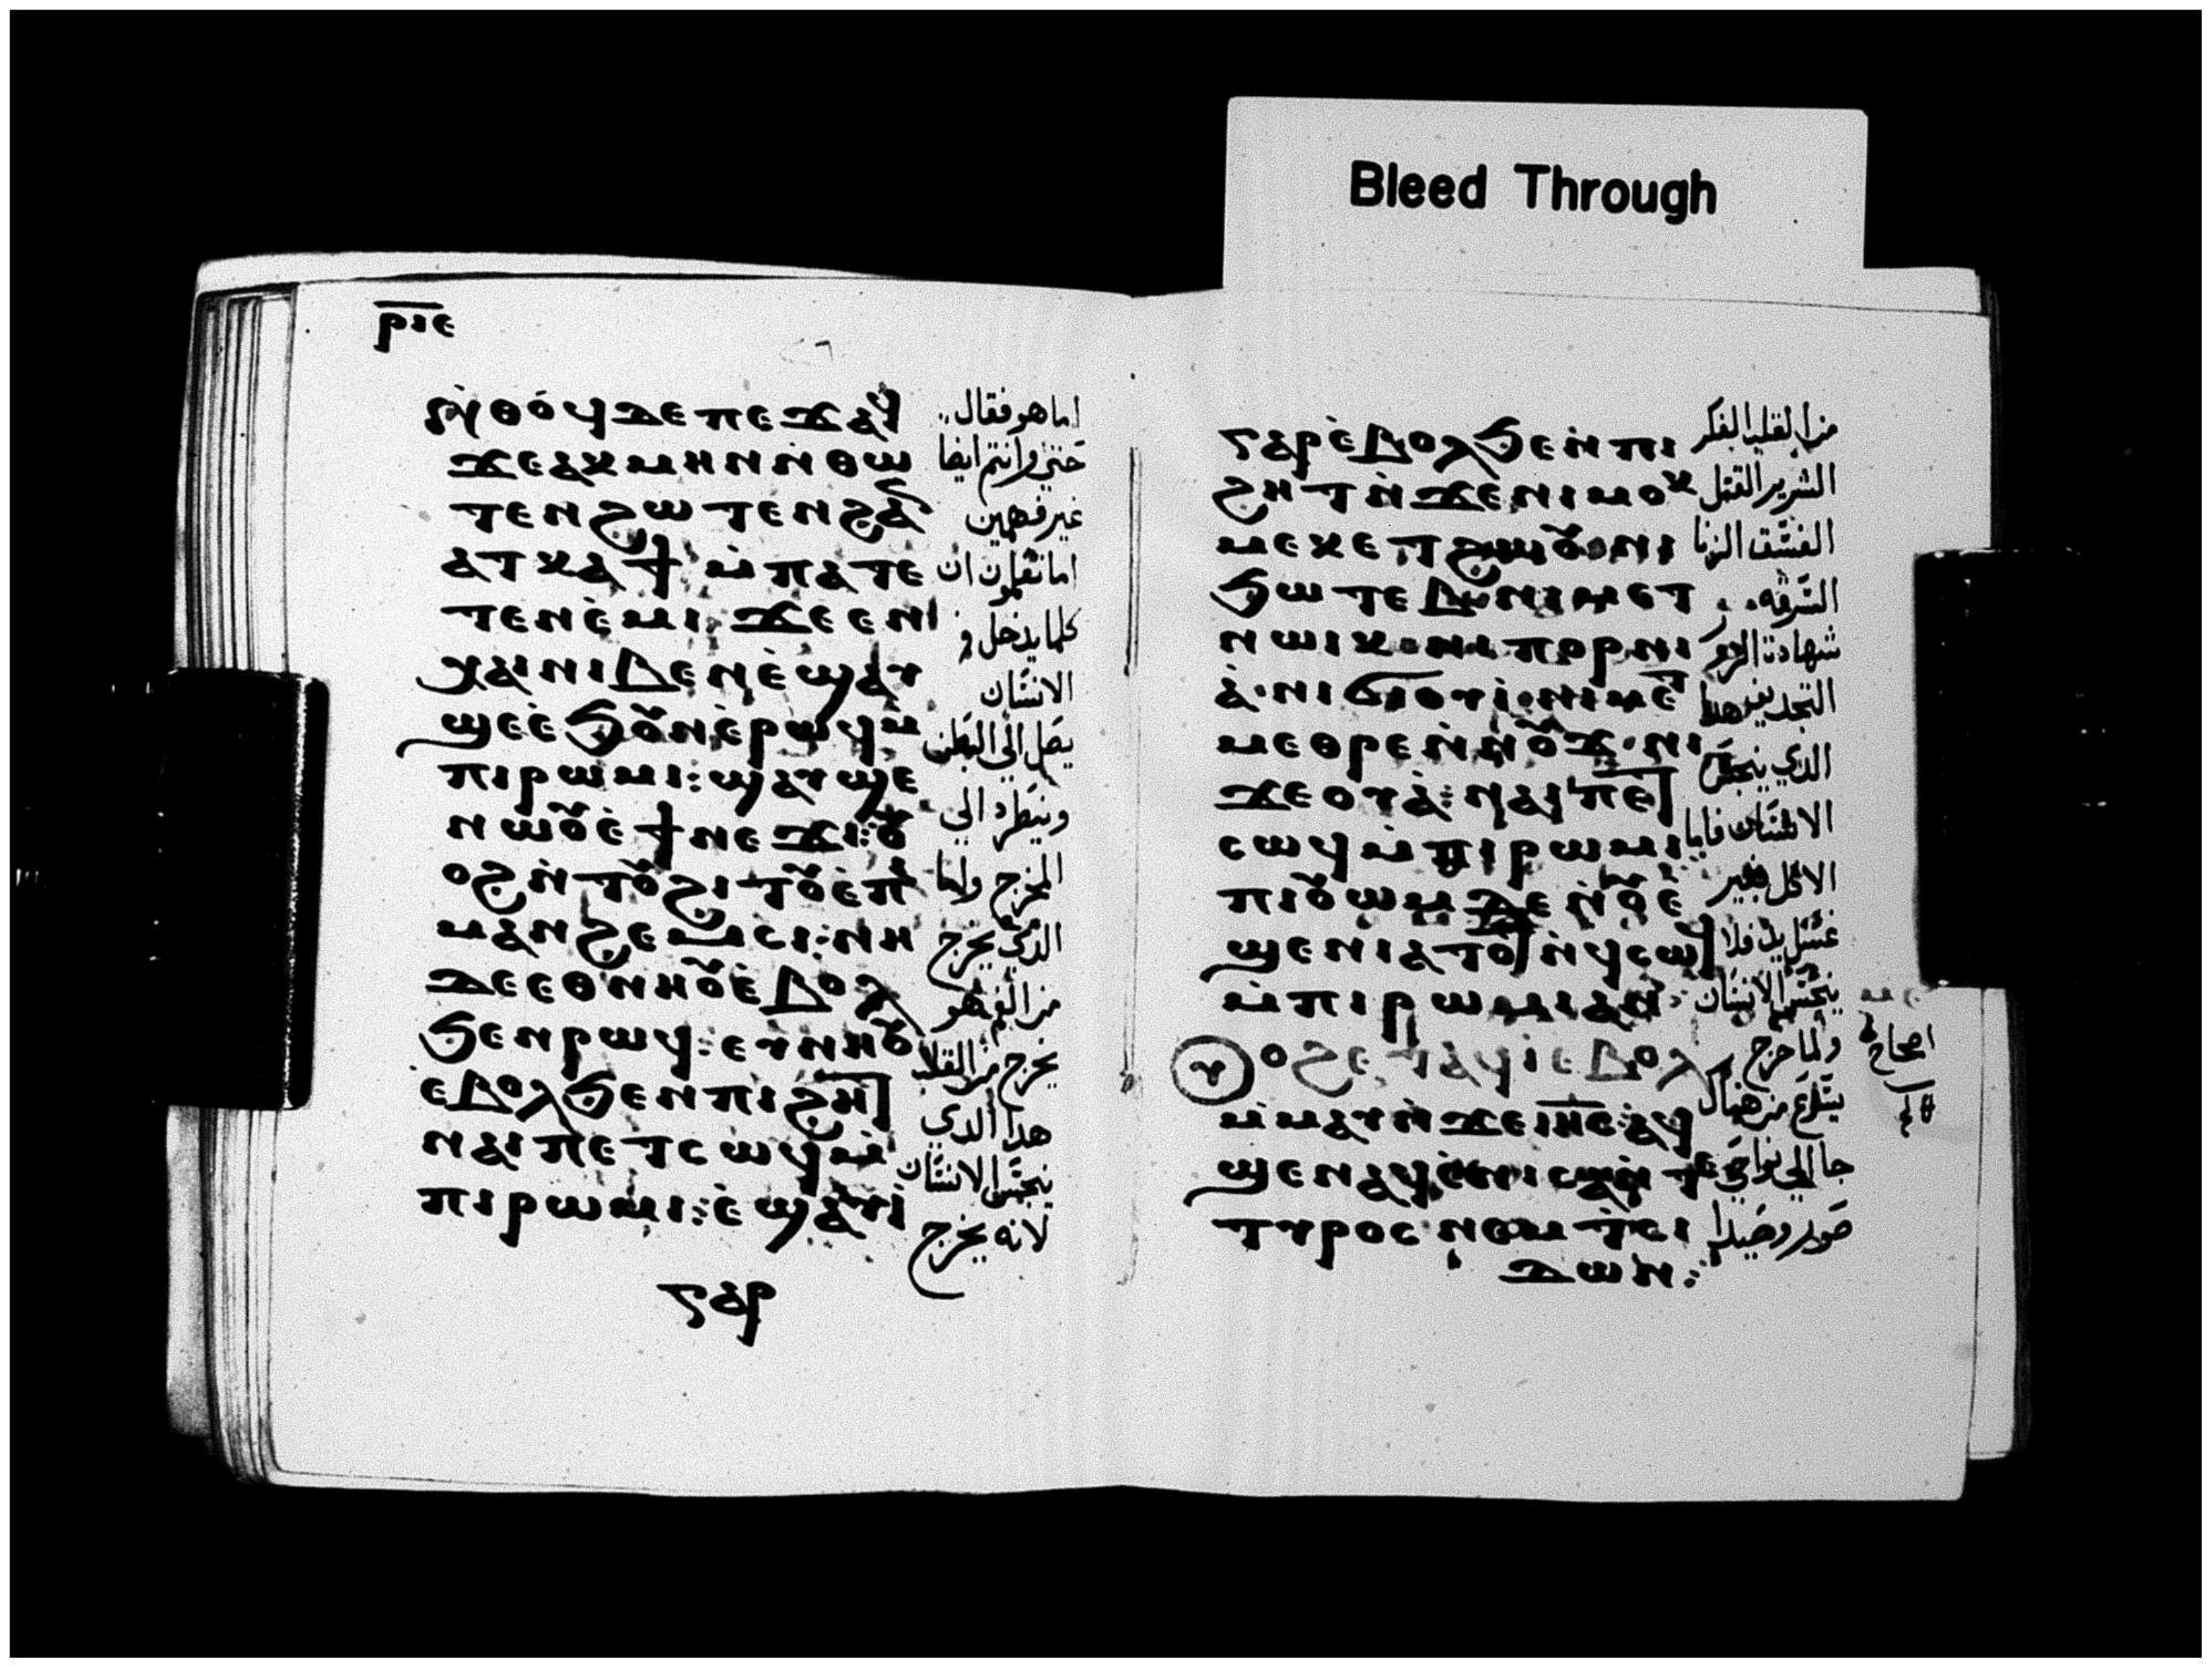 Bleed Through
ⲣⲓⲉ
ⲛ̀ⲑⲟϥ ⲇⲉ ⲡⲉϫⲁϥ
ϫⲉ ⲁⲕⲙⲏⲛ ⲛ̀ⲑⲱ
ⲧⲉⲛ ϩⲱⲧⲉⲛ ϩⲁⲛ
ⲁⲧⲕⲁϯ ⲙ̀ⲡⲁⲧⲉ
ⲧⲉⲛⲉ̀ⲙⲓ ϫⲉ ⲉⲛ
ⲭⲁⲓ ⲛⲓⲃⲉⲛ ⲉ̀ϣⲁⲩ
ϣⲉ ⲉ̀ϧⲟⲩⲛ ⲉ̀ⲣⲱϥ ⲙ̀
ⲡⲓⲣⲱⲙⲓ: ϣⲁⲩϣⲉ
ⲛⲱⲟⲩ ⲉ̀ϯⲛⲉϫⲓ: ⲟⲩ
ⲟϩ ⲛ̀ⲧⲟⲩϩⲓⲧⲟⲩ ⲉ̀ⲡ
ⲙⲁⲛϩⲉⲙⲥⲓ: ⲛⲏ
ⲇⲉ ⲉⲑⲛⲏⲟⲩ ⲉ̀ⲃⲟⲗ
ϧⲉⲛ ⲣⲱϥ: ⲉⲩⲛⲏⲟⲩ
ⲉⲃⲟⲗ ϧⲉⲛ ⲡⲓϩⲏⲧ
ⲛⲁⲓ ⲡⲉⲧⲥⲱϥ ⲙ̀
ⲡⲓⲣⲱⲙⲓ: ⲉ̀ϣⲁⲩⲓ̀
ⲅⲁⲣ
اما هو فقال
حتى وانتم ايضا
غير فهمين
اما تعلمون ان
كلما يدخل في
الانسان
يصل الي البطن
وينطرد الي
المخرج ولما
الذي يخرج
من الفم فهو
يخرج من القلب
هدا الدي
ينجس الانسان
لانه يخرج
ⲅⲁⲣ ⲉ̀ⲃⲟⲗ ϧⲉⲛ ⲡⲓ
ϩⲏⲧ ⲛ̀ϫⲉ ⲛⲓⲙⲟⲕ
ⲙⲉⲕ ⲉⲧϩⲱⲟⲩ ⲛⲓ
ϧⲱⲧⲉⲃ ⲛⲓⲙⲉⲧ
ⲛⲱⲓⲕ ⲛⲓⲡⲟⲣⲛⲓ
ⲁ̀ ⲛⲓϭⲓⲟⲩⲓ̀ ⲛⲓⲙⲉⲧ
ⲙⲉⲑⲣⲉ ⲛ̀ⲛⲟⲩϫ ⲛⲓ
ϫⲉⲟⲩⲁ̀: ⲛⲁⲓ ⲡⲉⲧ
ⲥⲱϥ ⲙ̀ⲡⲓⲣⲱⲙⲓ
ⲡⲓⲟⲩⲱⲙ ⲇⲉ ⲛ̀ⲟⲩⲉ
ϣⲉⲛ ⲓⲁⲧⲟⲧ ⲛ̀ϥⲥⲱϥ
ⲙ̀ⲡⲓⲣⲱⲙⲓ ⲁⲛ:
ⲟϩ ⲉⲧⲁϥⲓ ⲉⲃⲟⲗ
ⲙ̀ⲙⲁⲩ ⲛ̀ϫⲉ ⲓⲏⲥ: ⲁϥ
ϣⲉⲛⲁϥ ⲉ̀ⲛⲓⲥⲁ ⲛ̀ⲧⲉ
ⲧⲩⲣⲟⲥ ⲛⲉⲙ ⲧ̀ⲥⲓ
ⲇⲱⲛ:
من القلب الفكر
الشرير القتل
الفسق الزنا
السرقه
شهادت الزور
التجديف هدا
الدي ينجس
الانسان فاما
الاكل بغير
غسل يد فلا
ينجس الانسان
ولما خرج
يسوع من هناك
جا الي نواحي
صور وصيدا
اصحاح